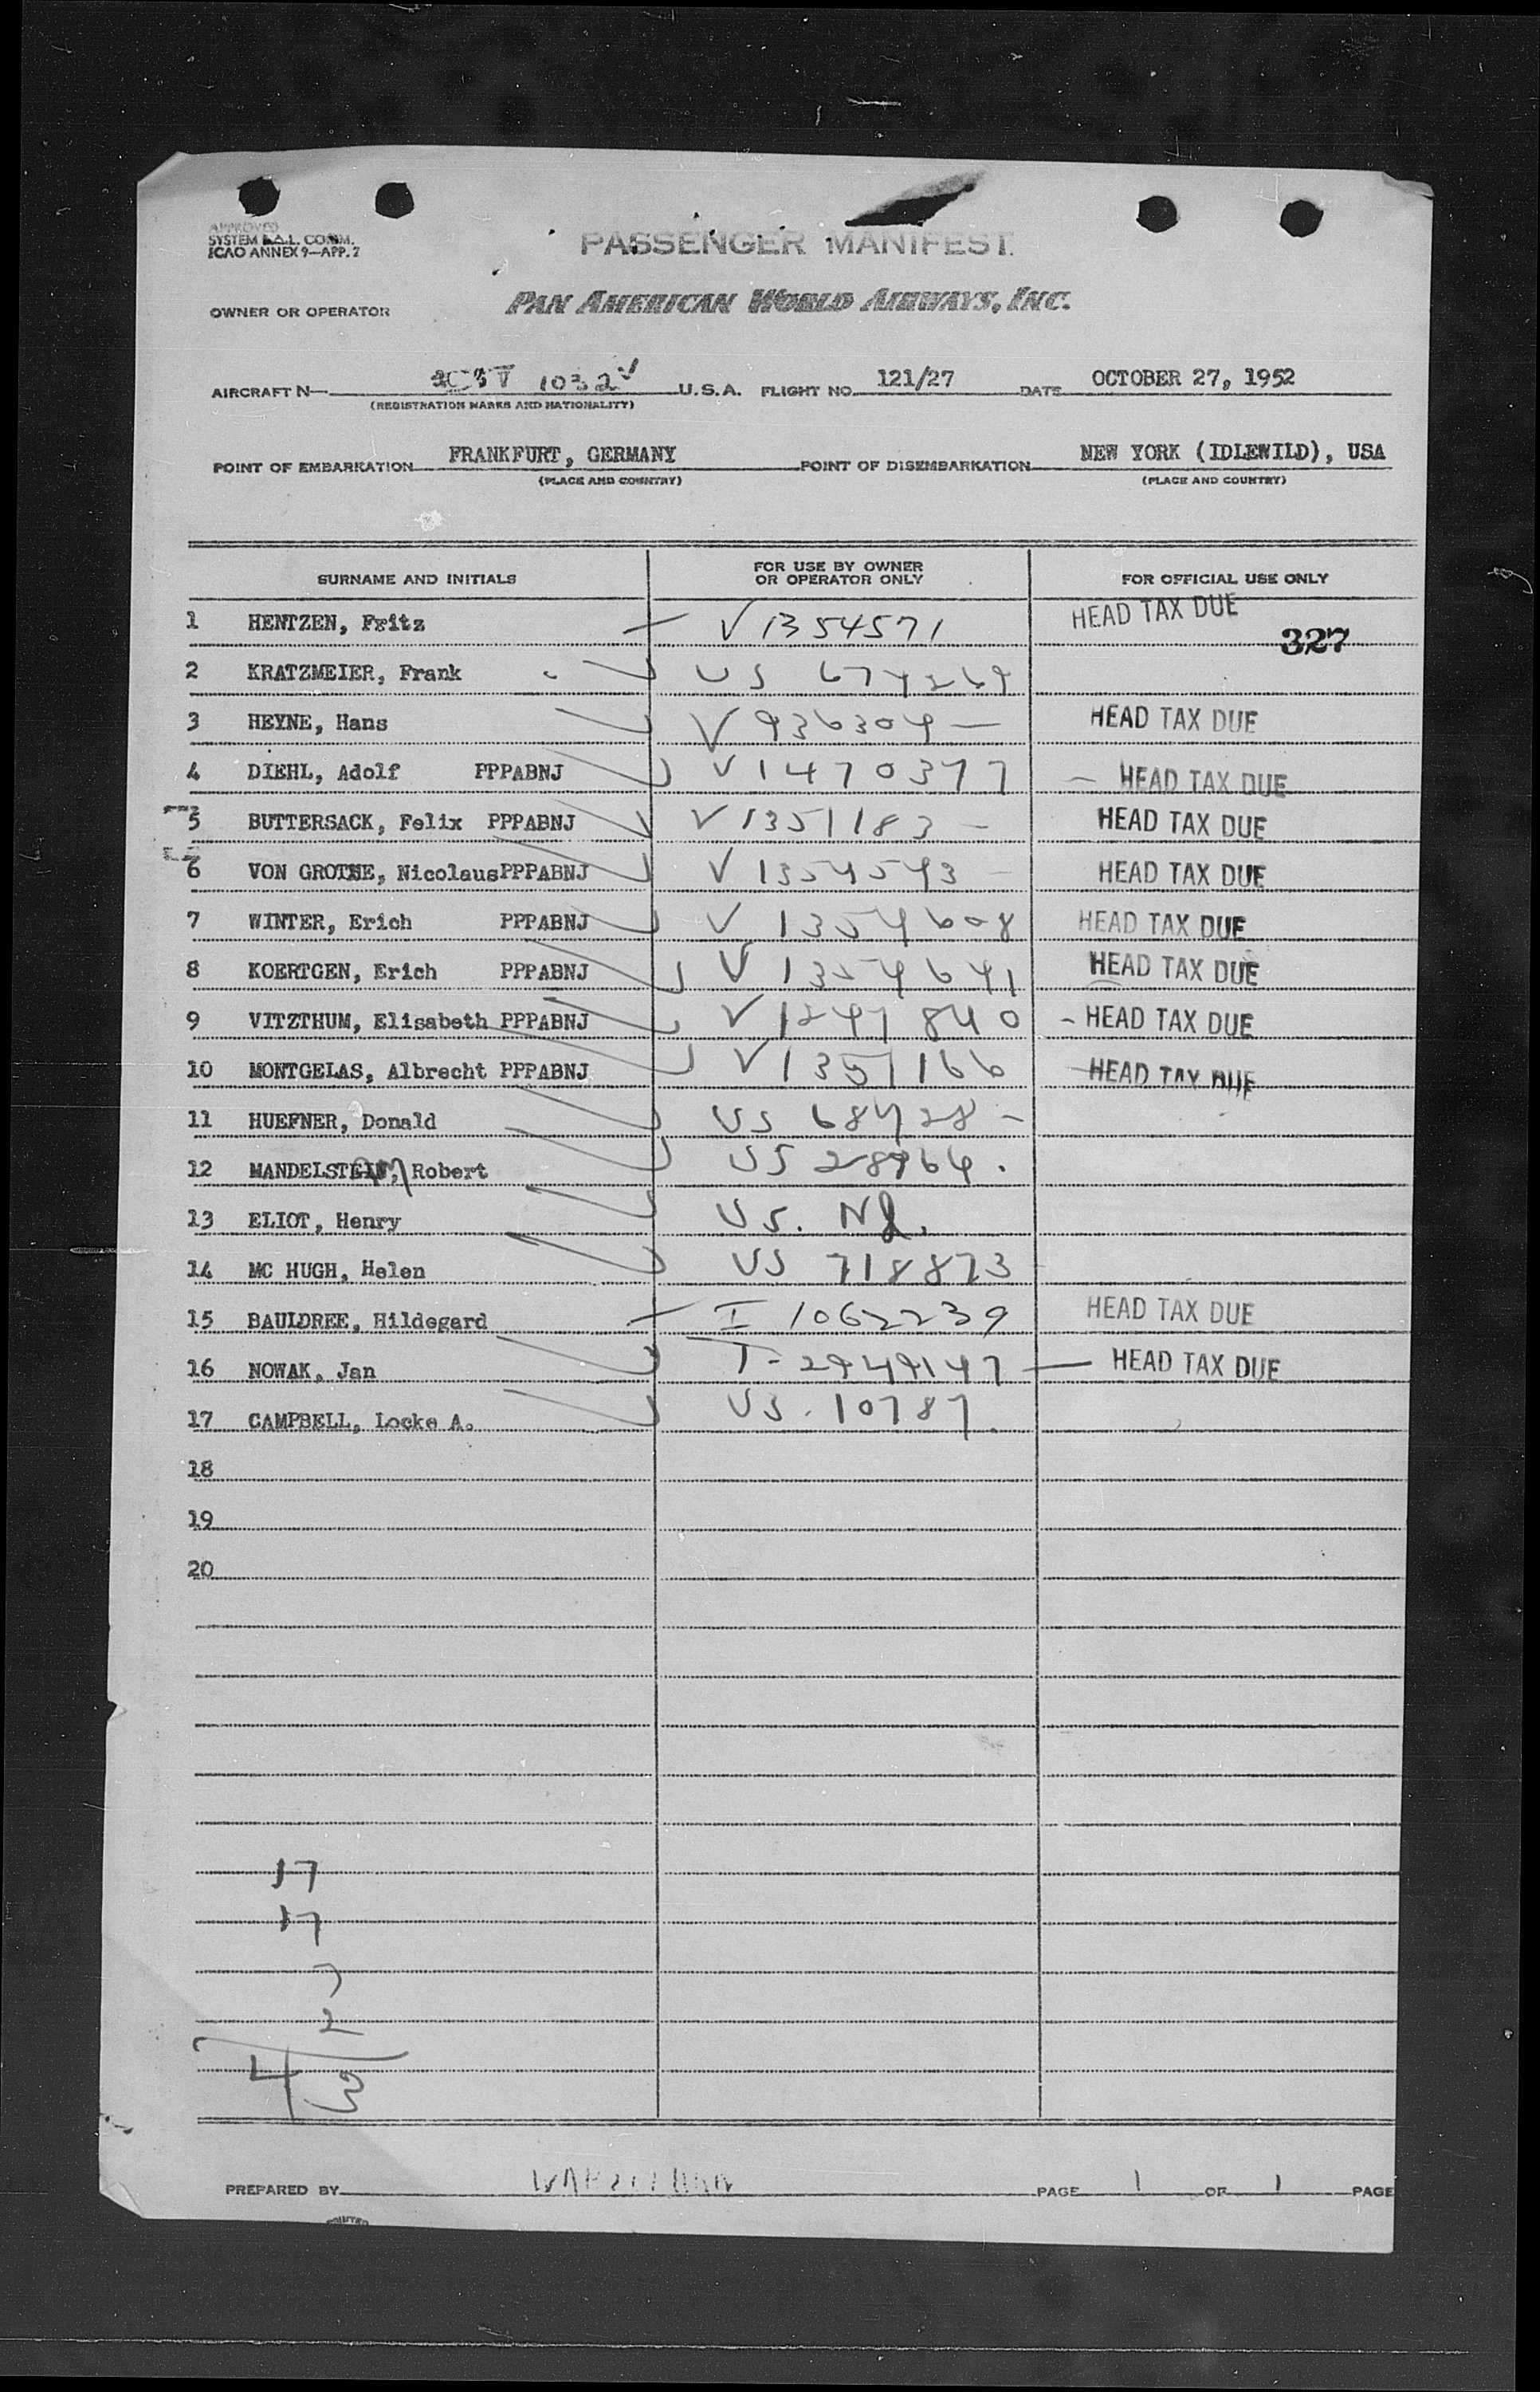 APPROVED
SYSTEM L. COMM.
ICAO ANNEX 9—APP. 2
PASSENGER MANIFEST
OWNER OR OPERATOR PAN AMERICAN WORLD AIRWAYS, INC.
AIRCRAFT N— 1032V U.S.A. FLIGHT NO. 121/27 DATE OCTOBER 27, 1952
(REGISTRATION MARKS AND NATIONALITY)
POINT OF EMBARKATION FRANKFURT, GERMANY POINT OF DISEMBARKATION NEW YORK (IDLEWILD), USA
(PLACE AND COUNTRY) (PLACE AND COUNTRY)
SURNAME AND INITIALS FOR USE BY OWNER OR OPERATOR ONLY FOR OFFICIAL USE ONLY
1 HENTZEN, Fritz V 1354571 HEAD TAX DUE
327
2 KRATZMEIER, Frank US 674269
3 HEYNE, Hans V 936304 — HEAD TAX DUE
4 DIEHL, Adolf PPPABNJ V 1470377 — HEAD TAX DUE
5 BUTTERSACK, Felix PPPABNJ V 1351183 — HEAD TAX DUE
6 VON GROTHE, Nicolaus PPPABNJ V 1354543 — HEAD TAX DUE
7 WINTER, Erich PPPABNJ V 1354608 HEAD TAX DUE
8 KOERTGEN, Erich PPPABNJ V 1354641 HEAD TAX DUE
9 VITZTHUM, Elisabeth PPPABNJ V 1247840 - HEAD TAX DUE
10 MONTGELAS, Albrecht PPPABNJ V 1351166 HEAD TAX DUE
11 HUEFNER, Donald US 68428 -
12 MANDELSTEIN, Robert US 28964.
13 ELIOT, Henry US.
14 MC HUGH, Helen US 718873
15 BAULDREE, Hildegard I 1062239 HEAD TAX DUE
16 NOWAK, Jan T- 2949147 — HEAD TAX DUE
17 CAMPBELL, Locke A. US. 10787.
18
19
20
17
17
7
2
43
PREPARED BY PAGE 1 OF 1 PAGE